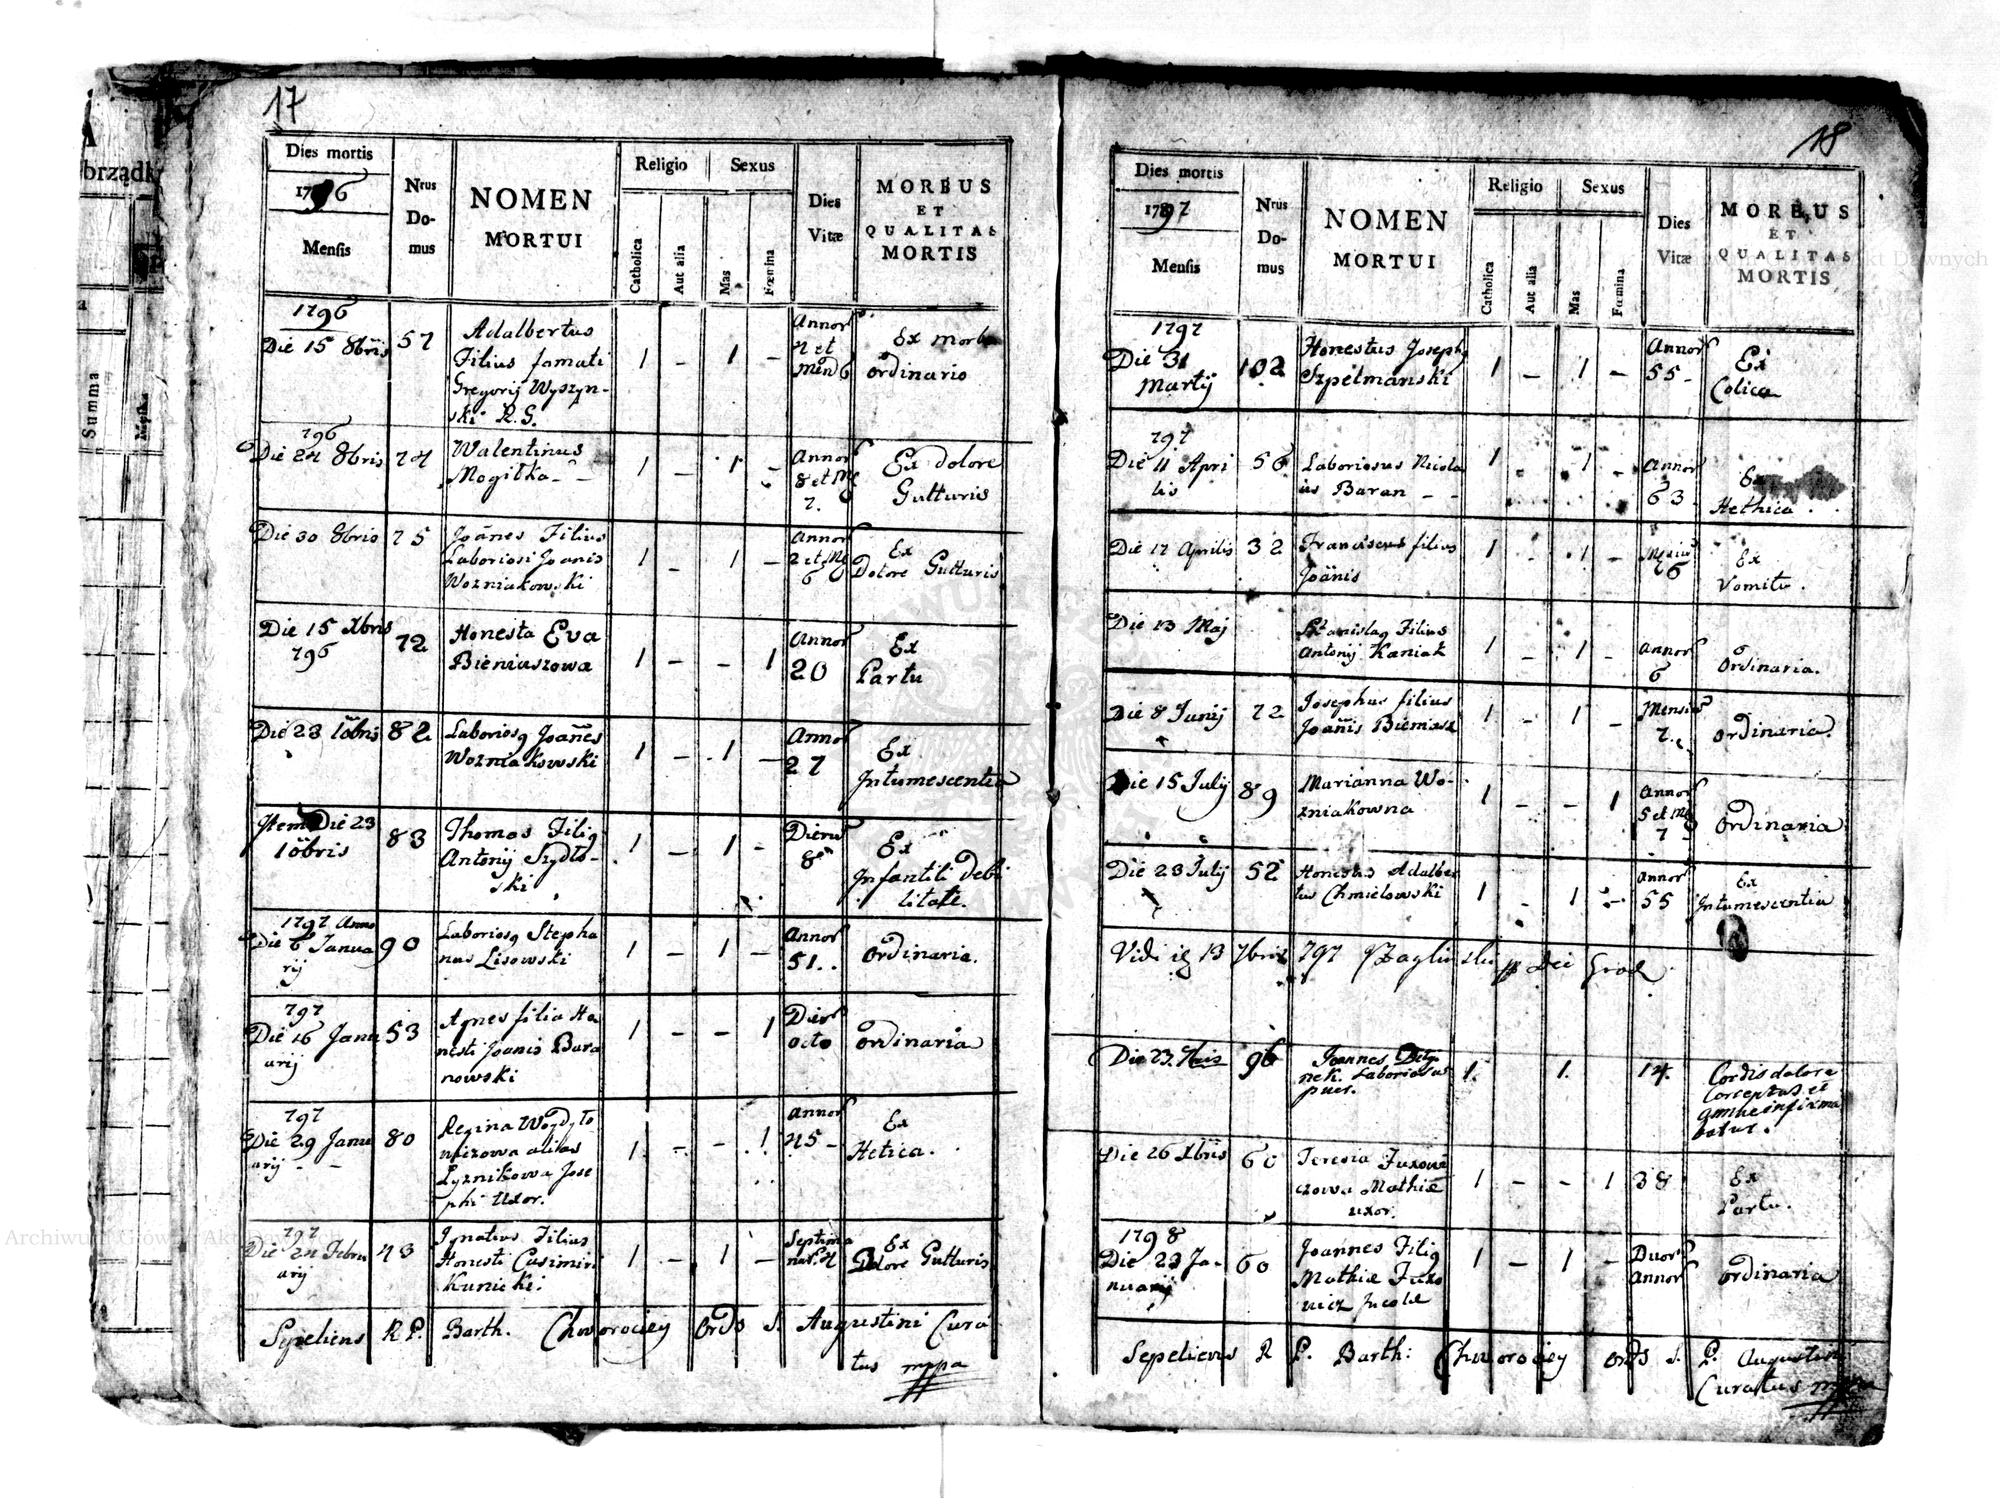 17
Dies mortis
1796
Mensis
Nrus
Do-
mus
NOMEN
MORTUI
Religio
Sexus
Catholica
Aut alia
Mas
Fœmina
Dies
Vitæ
MORBUS
ET
QUALITAS
MORTIS
1796
Die 15 8bris 57
Adalbertus
Filius famati
Gregorij Wyszyn-
ski R. G.
1 - 1 -
Annor
4 et
Men 6
Ex morbo
ordinario
796
Die 24 8bris 74
Walentinus
Mogiłka
1 - 1 -
Annor
8 et Me
7.
Ex dolore
Gutturis
Die 30 8bris 75
Joānes Filius
Laboriosi Joanis
Wozniakowski
1 - 1 -
Annor
2 et Me
6
Ex
Dolore Gutturis
Die 15 Xbris 72
796
Honesta Eva
Bieniaszowa
1 - - 1
Annor
20
Ex
Partu
Die 23 10bris 82
Laborios9 Joañes
Wozniakowski
1 - 1 -
Annor
27
Ex
Intumescentia
Item Die 23
10bris
83
Thomas Fili9
Antonij Szydło-
ski
1 - 1 -
Dieru
8
Ex
Infantili debi
litate.
1797 Anno
Die 6 Janua
rij
90
Laborios9 Stepha
nus Lisowski
1 - 1 -
Annor
51..
Ordinaria.
797
Die 16 Janu
arij
53
Agnes filia Ho
nesti Joanis Bara
nowski
1 - - 1
Dier
octo
Ordinaria
797
Die 29 Janu
arij - -
80
Regina
alias
Jose
phi Uxor.
1 - - 1
Annor
45 -
Ex
Hetica.
797
Die 24 Febru
arij
43
Ignatius Filius
Honesti Casimiri
Kunicki.
1 - 1 -
Septima
nar. 4
Ex
Dolore Gutturis
Sepeliens R P. Barth. Chworociey Ords S. Augustini Cura
tus mppa
18
Dies mortis
1797
Mensis
Nrus
Do-
mus
NOMEN
MORTUI
Religio
Sexus
Catholica
Aut alia
Mas
Fœmina
Dies
Vitæ
MORBUS
ET
QUALITAS
MORTIS
1797
Die 31
Martij
102
Honestus Joseph9
Szpelmanski
1 - 1 -
Annor
55 -
Ex
Colica
797
Die 11 Apri
lis
56
Laboriosus Nicola
us Baran - -
1 - 1 -
Annor
63
Ex
Hethica.
Die 17 Aprilis 32
Franciscus filius
Joānis
1 - 1 -
6
Ex
Vomitu.
Die 13 Maj
Stanislaq Filius
Antonij Kaniak
1 - 1 -
Annor
6
Ordinaria.
Die 8 Junij 72
Josephus filius
Joañis Bieniasz
1 - 1 -
Mensiu
7.
Ordinaria.
Die 15 July 89
Marianna Wo-
zniakowna
1 - - 1
Annor
5 et Me
7
Ordinaria
Die 23 July 52
Honestus Adalber
tus Chmielowski
1 - 1 -
Annor
55
Ex
Intumescentia
Vidi 13 7bris 797
Die 23. 96
Joannes
nek. Laboriosus
puer.
1. 1. 14.
Cordis dolore
Correptus et
Die 26 Xbris 60
Teresia
Mathiæ
uxor.
1 - - 1 38
Ex
Partu.
1798
Die 23 Ja-
nuarij
60
Joannes Fili9
Mathiæ
1 - 1 -
Duor
Annor
Ordinaria
Sepeliens R P. Barth: Chworociey Ords S. P. Augustini
Curatus mppa
brządk
Summa
Archiwum Główne Akt Dawnych